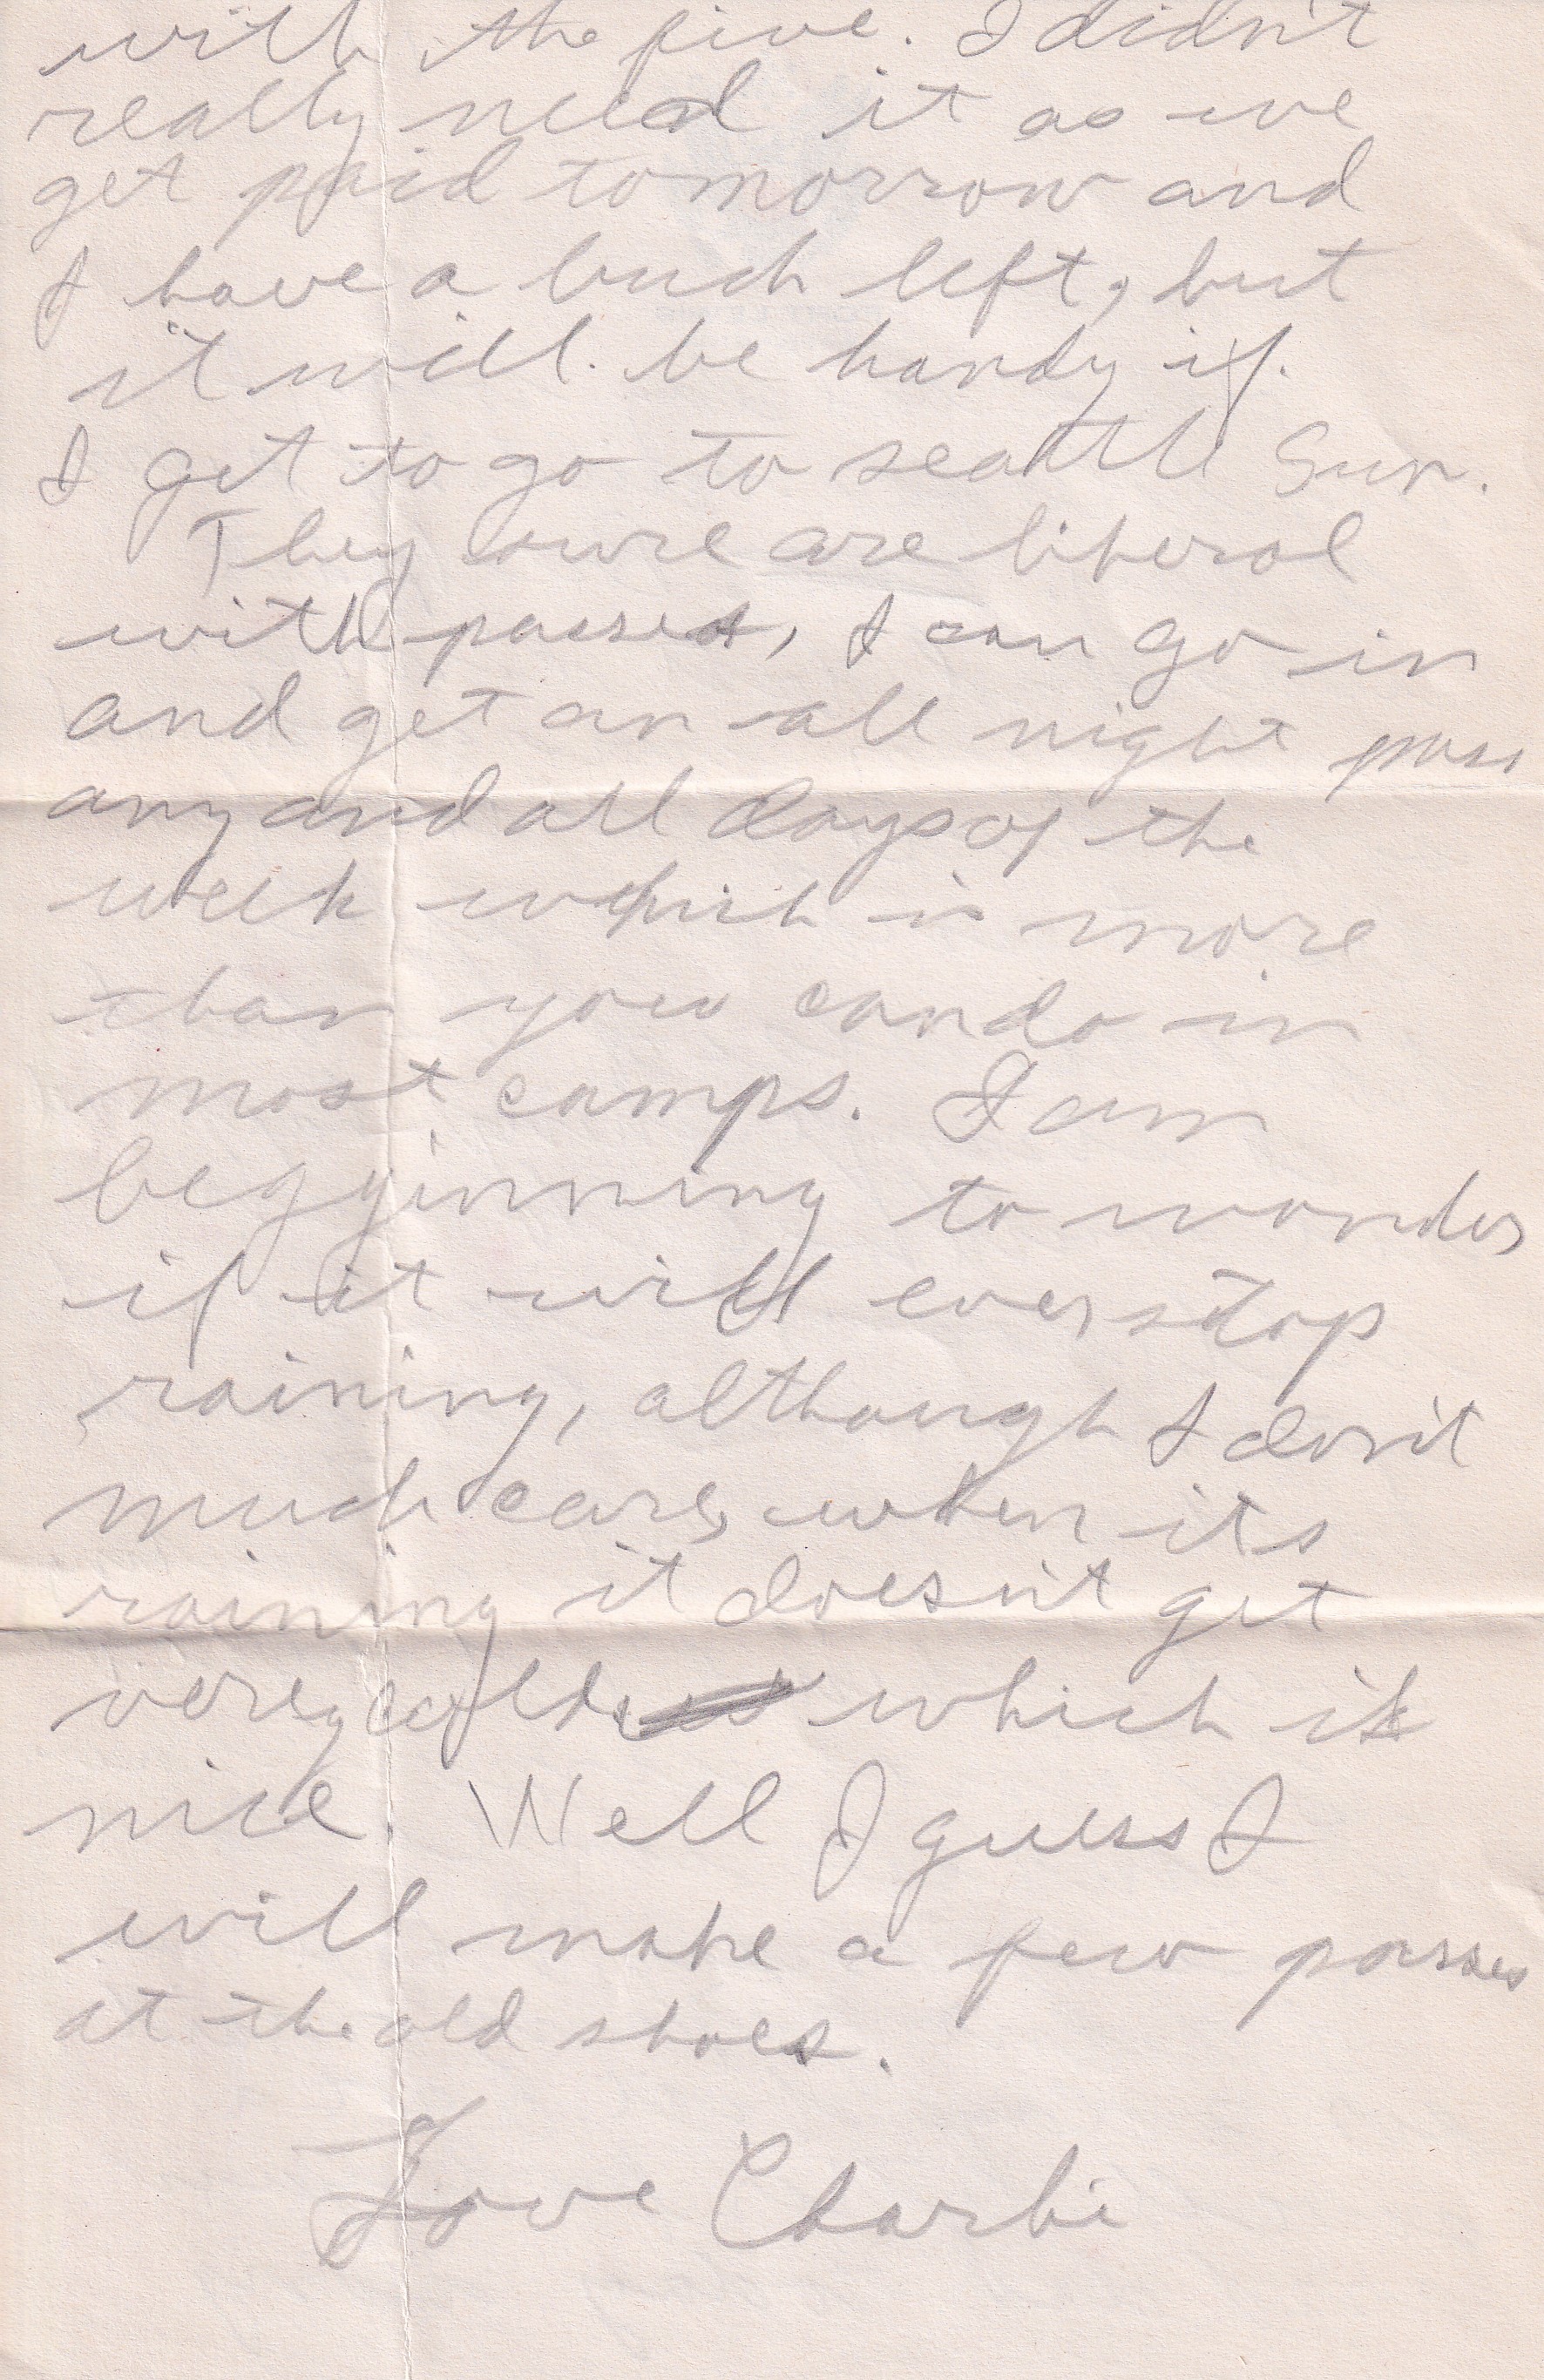 with the five. I didn't
really need it as we
get paid tomorrow and
I have a buch left, but
it will be handy if
I get to go to seattle Sun.
They sure are liberal
with passes, I can go in
and get an all night pass
any and all days of the
week which is more
than you can do in
most camps. I am
begginning to wonder
if it will ever stop
raining, although I don't
much care, when its
raining it doesn't get
very cold, which is
nice. Well I guess I
will make a few passes
at the old shoes.
Love Charlie